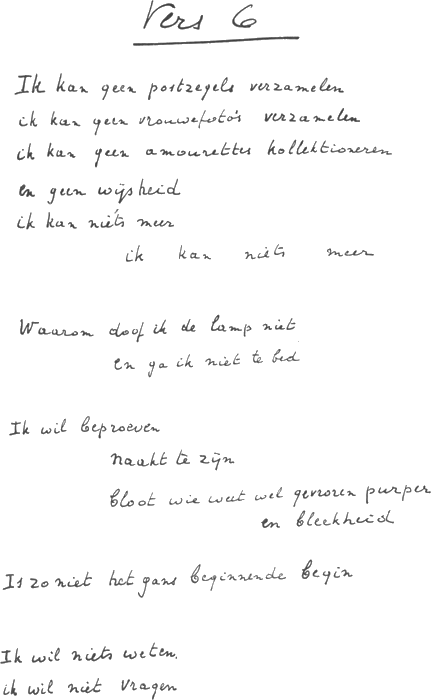 Vers 6
Ik kan geen postzegels verzamelen
ik kan geen vrouwefoto's verzamelen
ik kan geen amourettes kollektioneren
en geen wijsheid
ik kan niets meer
ik kan niets meer
Waarom doof ik de lamp niet
en ga ik niet te bed
Ik wil beproeven
naakt te zijn
bloot wie weet wel gevroren purper
en bleekheid
Is zo niet het gans beginnende begin
Ik wil niets weten.
ik wil niet vragen